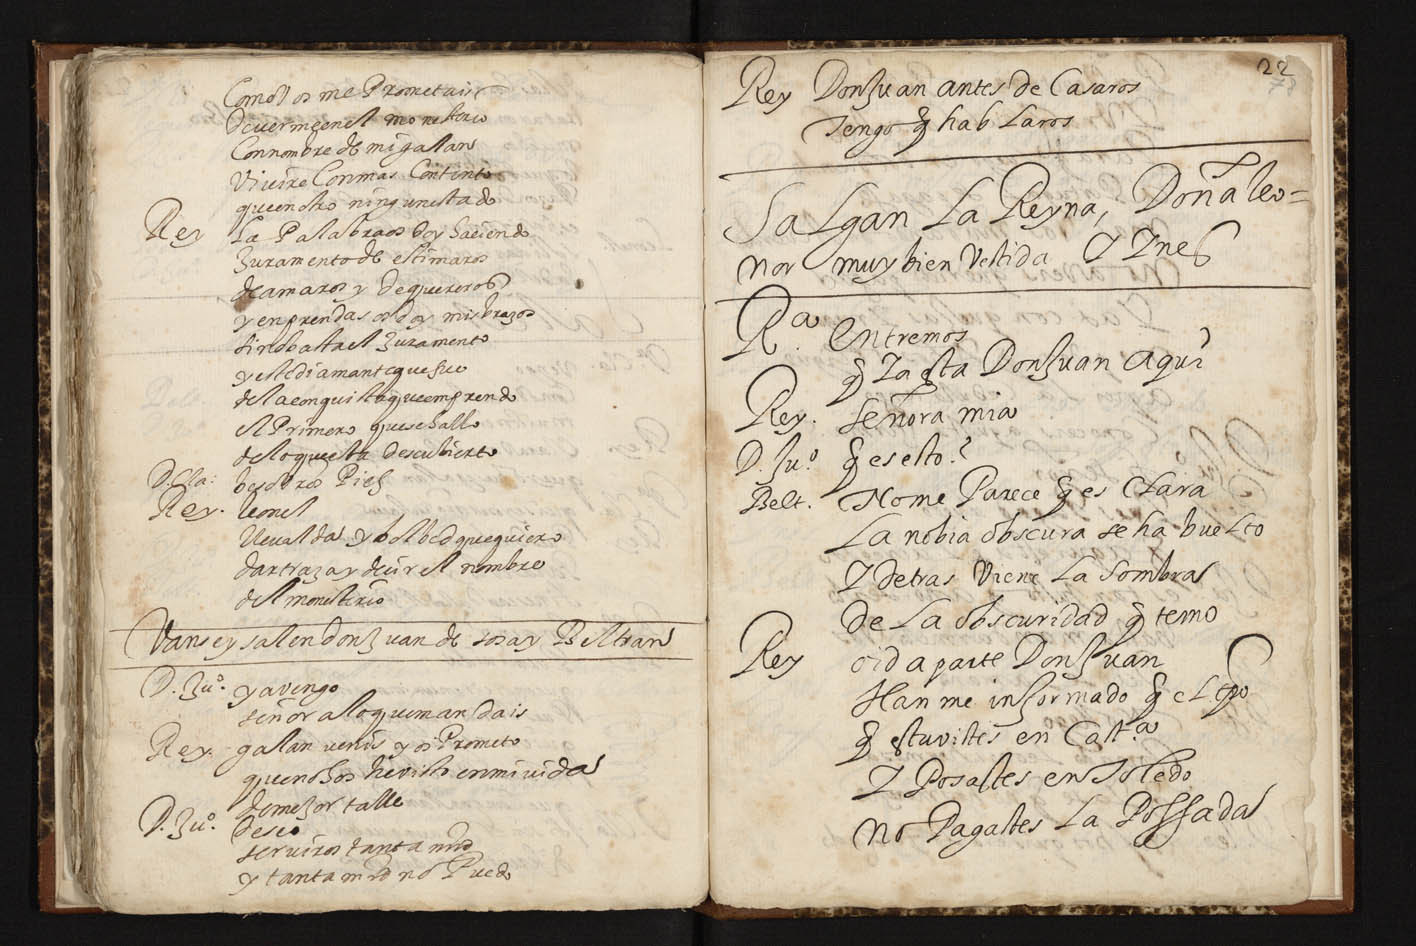 Como Vos me Prometais
de verme en el monesterio
Con nombre de mi galan
Viuire Con mas Contento
que en otro ningun estado
Rey La Palabra os doy haciendo
Juramento de estimaros
de amaros y de quereros
y en prendas os doy mis brazos
si no basta el Juramento
y este diamante que fue
de la conquista que emprendo
el Primero que se hallo
de lo que esta descubierto
D. Cla: beso bros Pies
Rey. leonel
lleualda y bolbed que quiero
dar traza y decir el nombre
del monesterio
Vanse y salen don Juan de sosa y Beltran
D. Ju.º ya vengo
señor a lo que mandais
Rey. galan venis y os Prometo
que no os he visto en mi vida
de mejor talle
D. Ju.º deseo
serviros tanta mrd
y tanta mrd no Puedo
22
Rey Don Juan antes de Casaros
Tengo q hablaros
Salgan La Reyna, Doña Leo=
nor muy bien Vestida Y Ynes
Rª. entremos
q Ya esta Don Juan aqui
Rey. señora mia
D. Ju.º q es esto?
Belt. No me Parece q es Clara
La nobia obscura se ha buelto
Y detras Viene La Sombra
de La obscuridad q temo
Rey oid aparte Don Juan
Han me informado q el tpo
q estuvistes en Cast.ª
Y Posastes en Toledo
no Pagastes La Possada